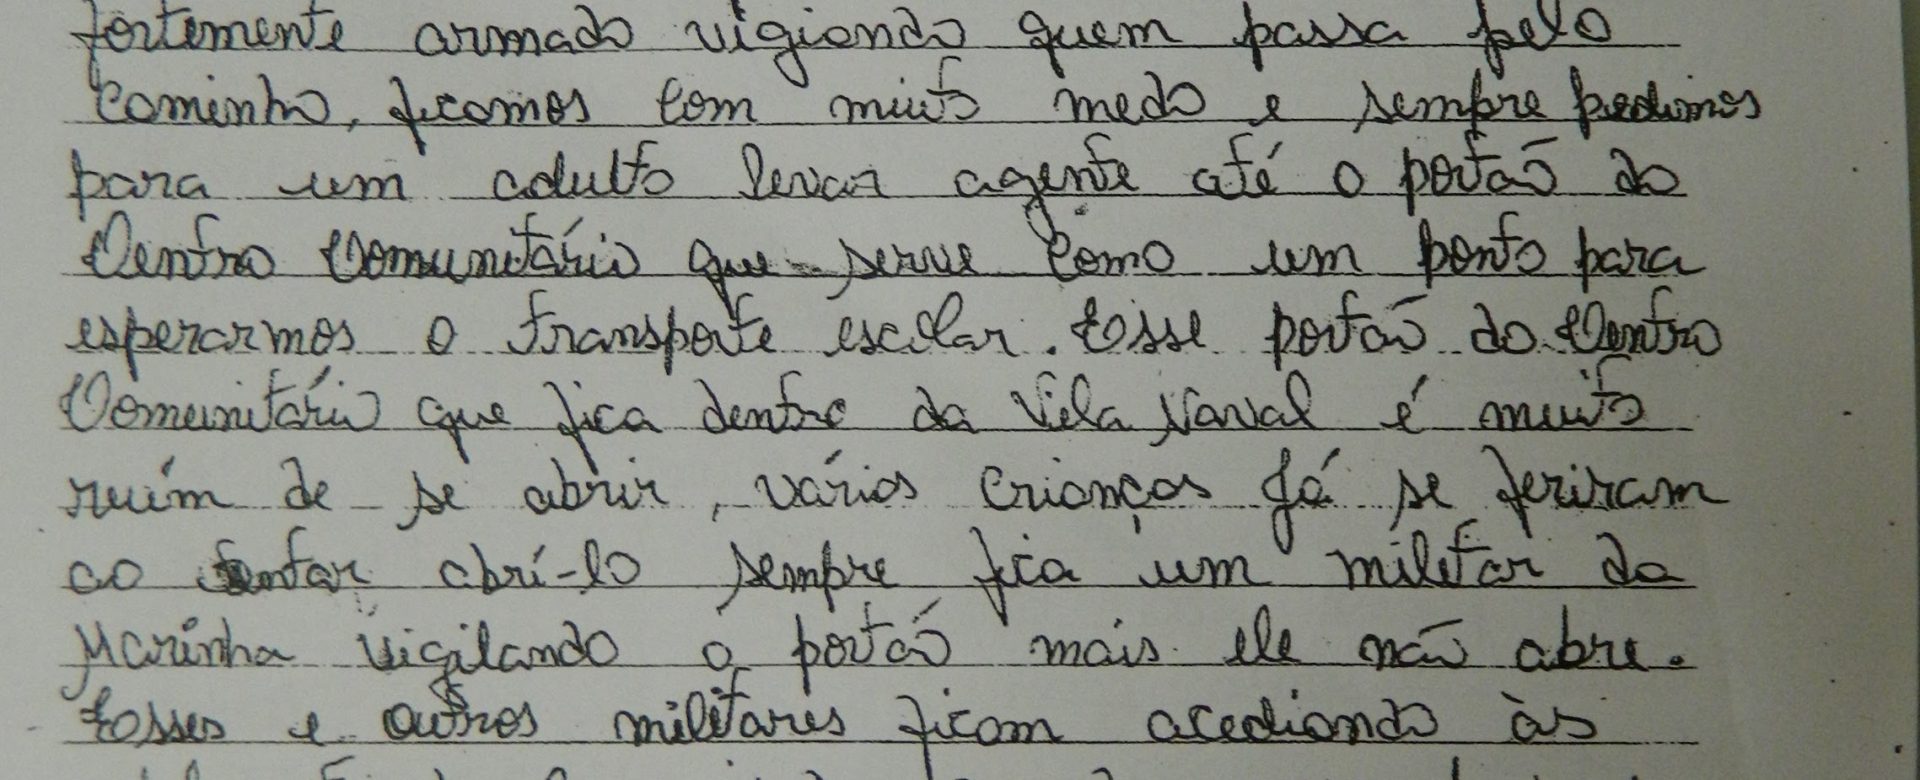 fortemente armado vigiando quem passa pelo
caminho, ficamos com muito medo e sempre pedimos
para um adulto levar agente até o portão do
Centro Comunitário que serve como um ponto para
esperarmos o transporte escolar. Esse portão do Centro
Comunitário que fica dentro da Vila Naval é muito
ruím de se abrir, várias crianças já se feriram
ao tentar abrí-lo sempre fica um militar da
Marinha vigilando o portão mais ele não abre.
Esses e outros militares ficam acediando às